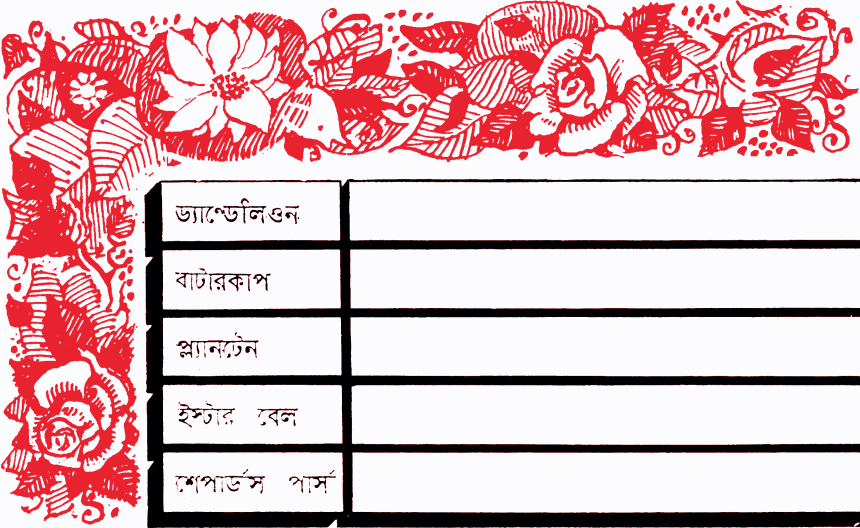 ড্যাণ্ডেলিওন
বাটারকাপ
প্ল্যানটেন
ইস্টার বেল
শেপার্ডস পার্স